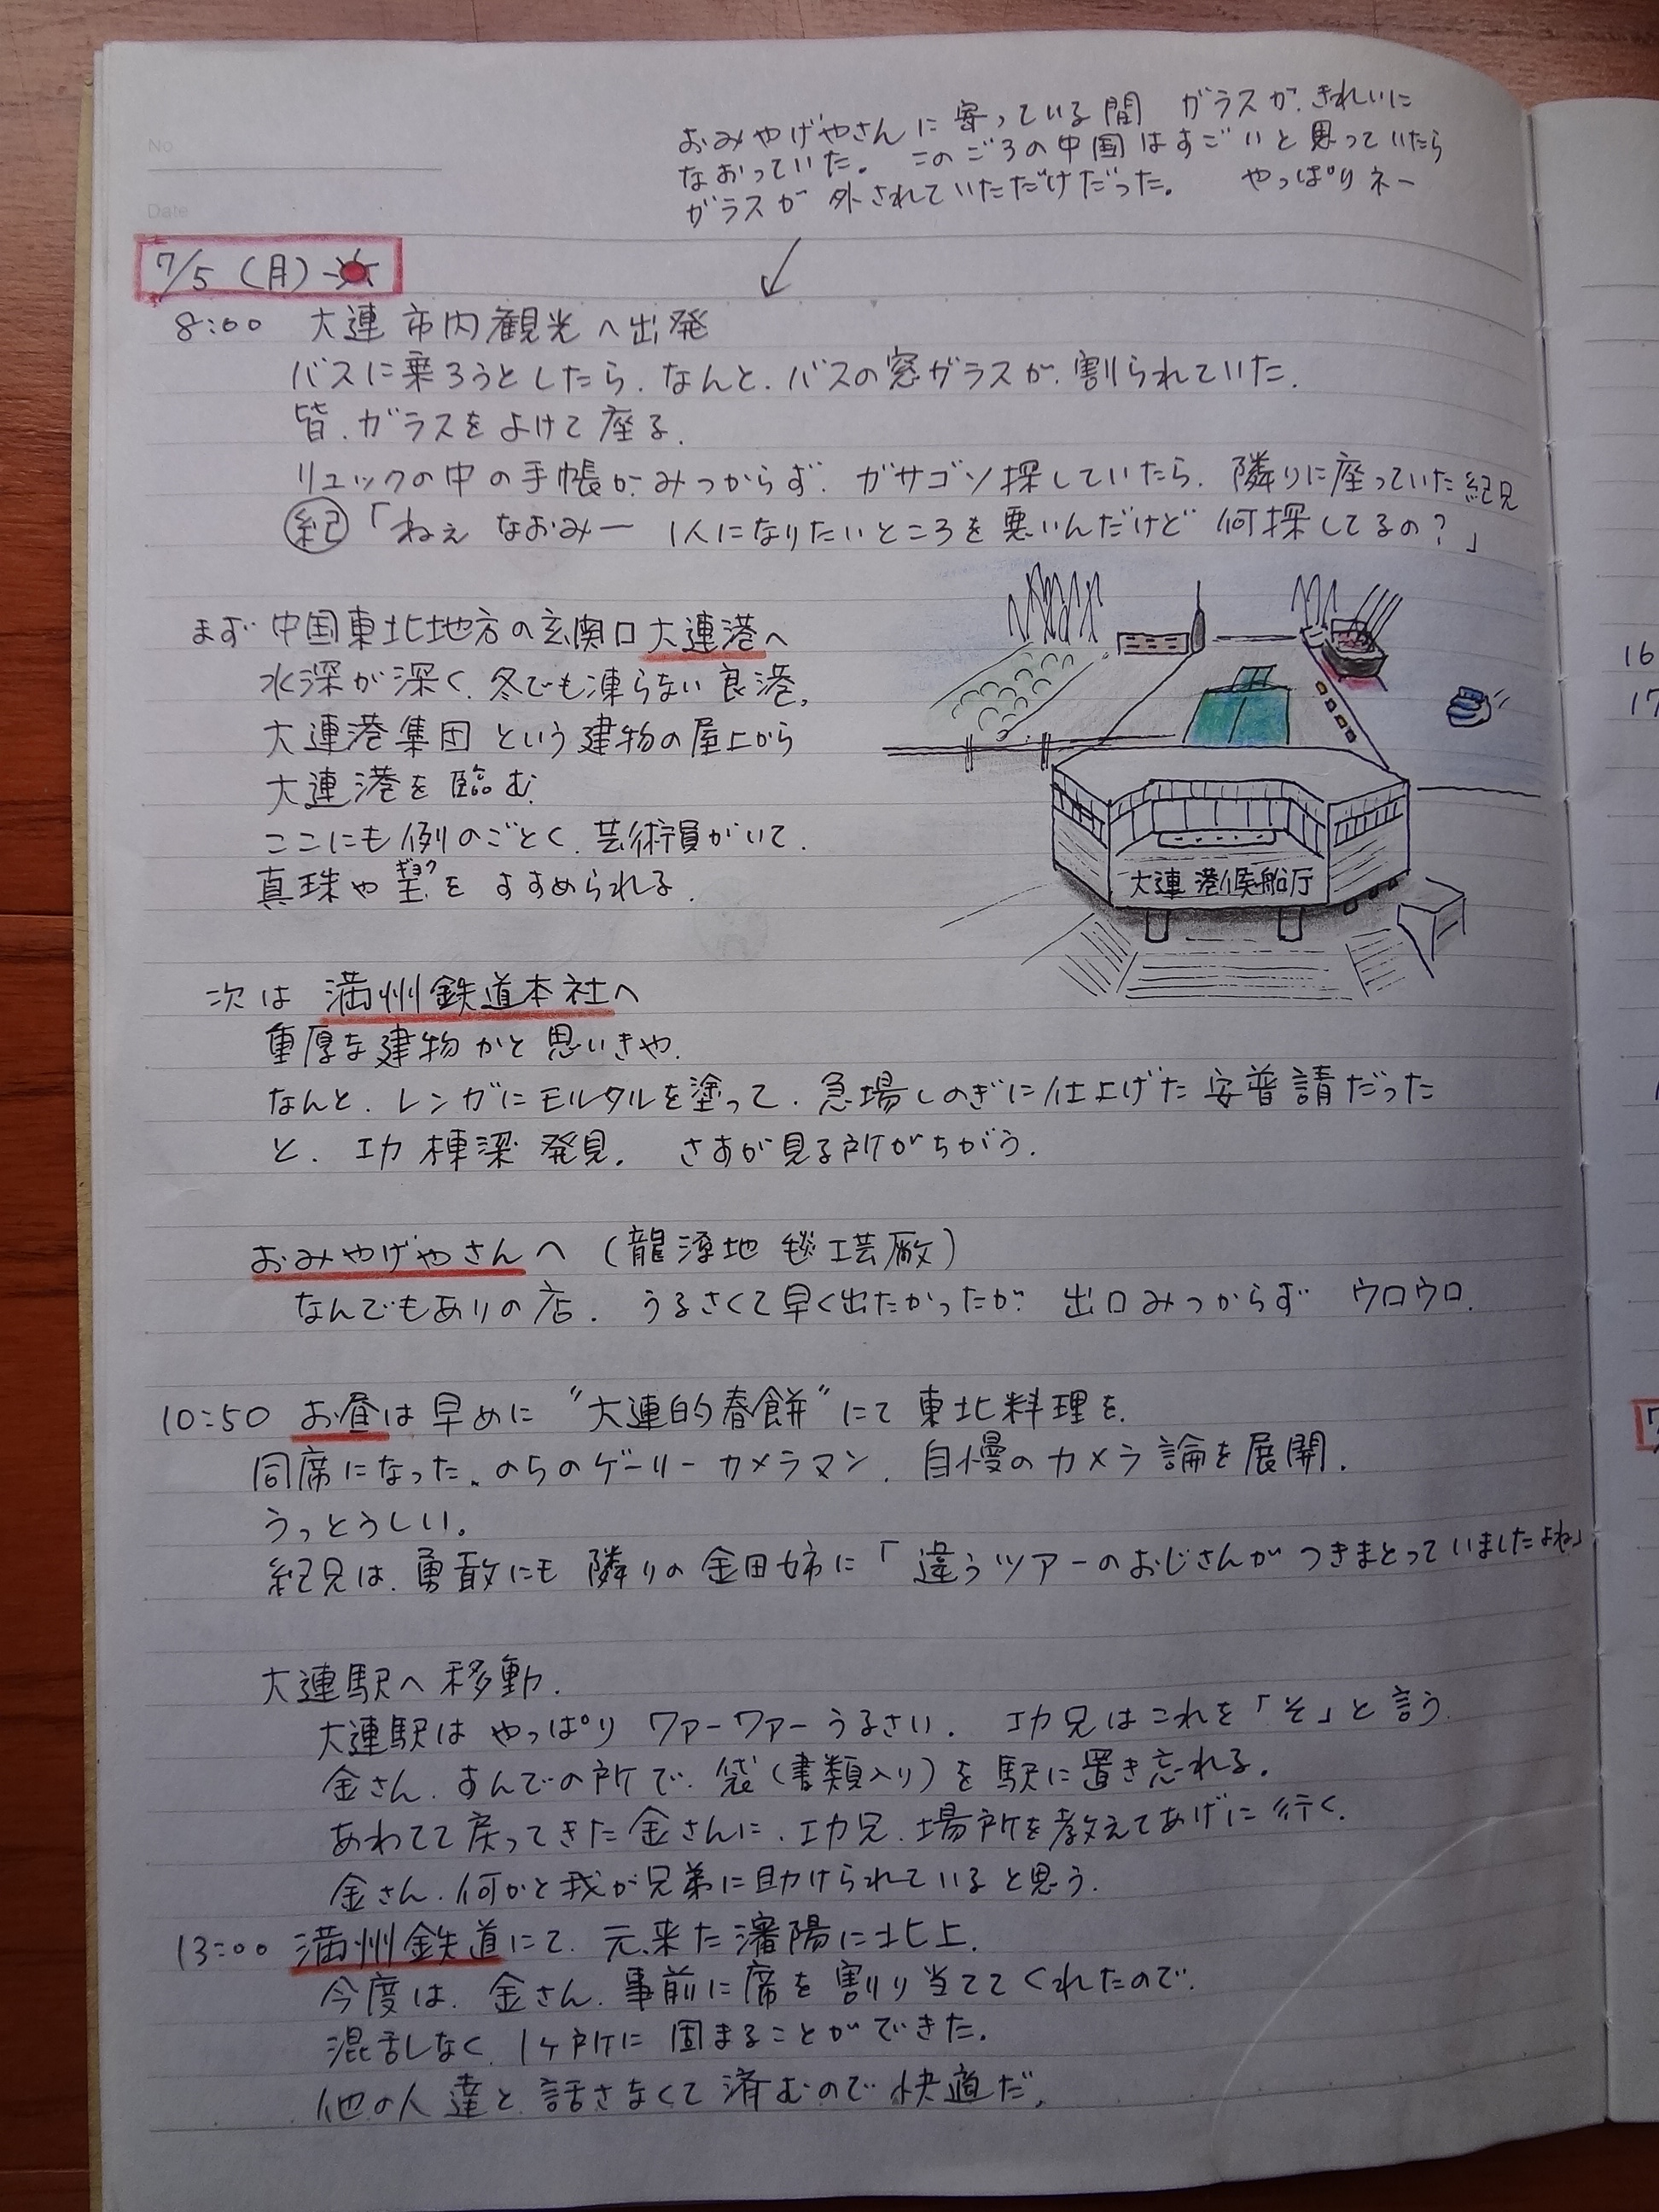 No
Date
おみやげやさんに寄っている間 ガラスが、きれいに
なおっていた。 このごろの中国はすごいと思っていたら
ガラスが外されていただけだった。 やっぱりネー
7/5(月)
8:00 大連市内観光へ出発
バスに乗ろうとしたら、なんと、バスの窓ガラスが、割られていた。
皆、ガラスをよけて座る。
リュックの中の手帳が、みつからず、ガサゴソ探していたら、隣りに座っていた紀兄
紀「ねぇ なおみー 1人になりたいところを悪いんだけど 何探してるの?」
まず中国東北地方の玄関口大連港へ
水深が深く、冬でも凍らない良港。
大連港集団という建物の屋上から
大連港を臨む。
ここにも例のごとく、芸術員がいて、
真珠や ギョク をすすめられる。
大連港候船庁
次は 満州鉄道本社へ
重厚な建物かと思いきや、
なんと、レンガにモルタルを塗って、急場しのぎに仕上げた安普請だった
と、功棟梁発見。 さすが見る所がちがう。
おみやげやさんへ (龍 地毯工芸廠)
なんでもありの店。 うるさくて早く出たかったが 出口みつからず ウロウロ。
10:50 お昼は早めに "大連的春餅"にて 東北料理を。
同席になった、のらのゲーリーカメラマン、自慢のカメラ論を展開。
うっとうしい。
紀兄は、勇敢にも隣りの金田姉に「違うツアーのおじさんがつきまとっていましたよね」
大連駅へ移動。
大連駅は やっぱり ワァーワァーうるさい。 功兄はこれを「そ」と言う。
金さん、すんでの所で、袋(書類入り)を駅に置き忘れる。
あわてて戻ってきた金さんに、功兄、場所を教えてあげに行く。
金さん、何かと我が兄弟に助けられていると思う。
13:00 満州鉄道にて、元来た瀋陽に北上。
今度は、金さん、事前に席を割り当ててくれたので、
混乱しなく、1ヶ所に固まることができた。
他の人達と、話さなくて済むので快適だ。
16
17